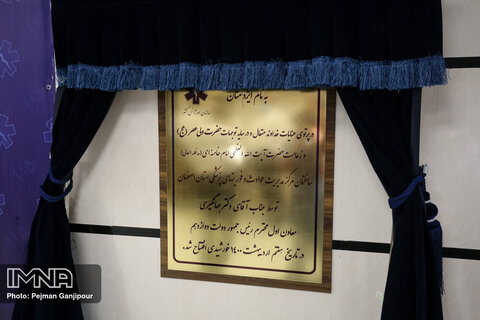 به نام ایزد منان
سازمان اورژانس کشور
در پرتوی عنایات خداوند متعال و در سایه توجهات حضرت ولی عصر (عج)
و زعامت حضرت آیت الله العظمی امام خامنه ای (مدظله العالی)
ساختمان مرکز مدیریت حوادث و فوریت‌های پزشکی استان اصفهان
توسط جناب آقای دکتر جهانگیری
معاون اول محترم رئیس جمهور دولت دوازدهم
در تاریخ هفتم اردیبهشت ۱۴۰۰ خورشیدی افتتاح شد.
IMNA
Photo: Pejman Ganjipour